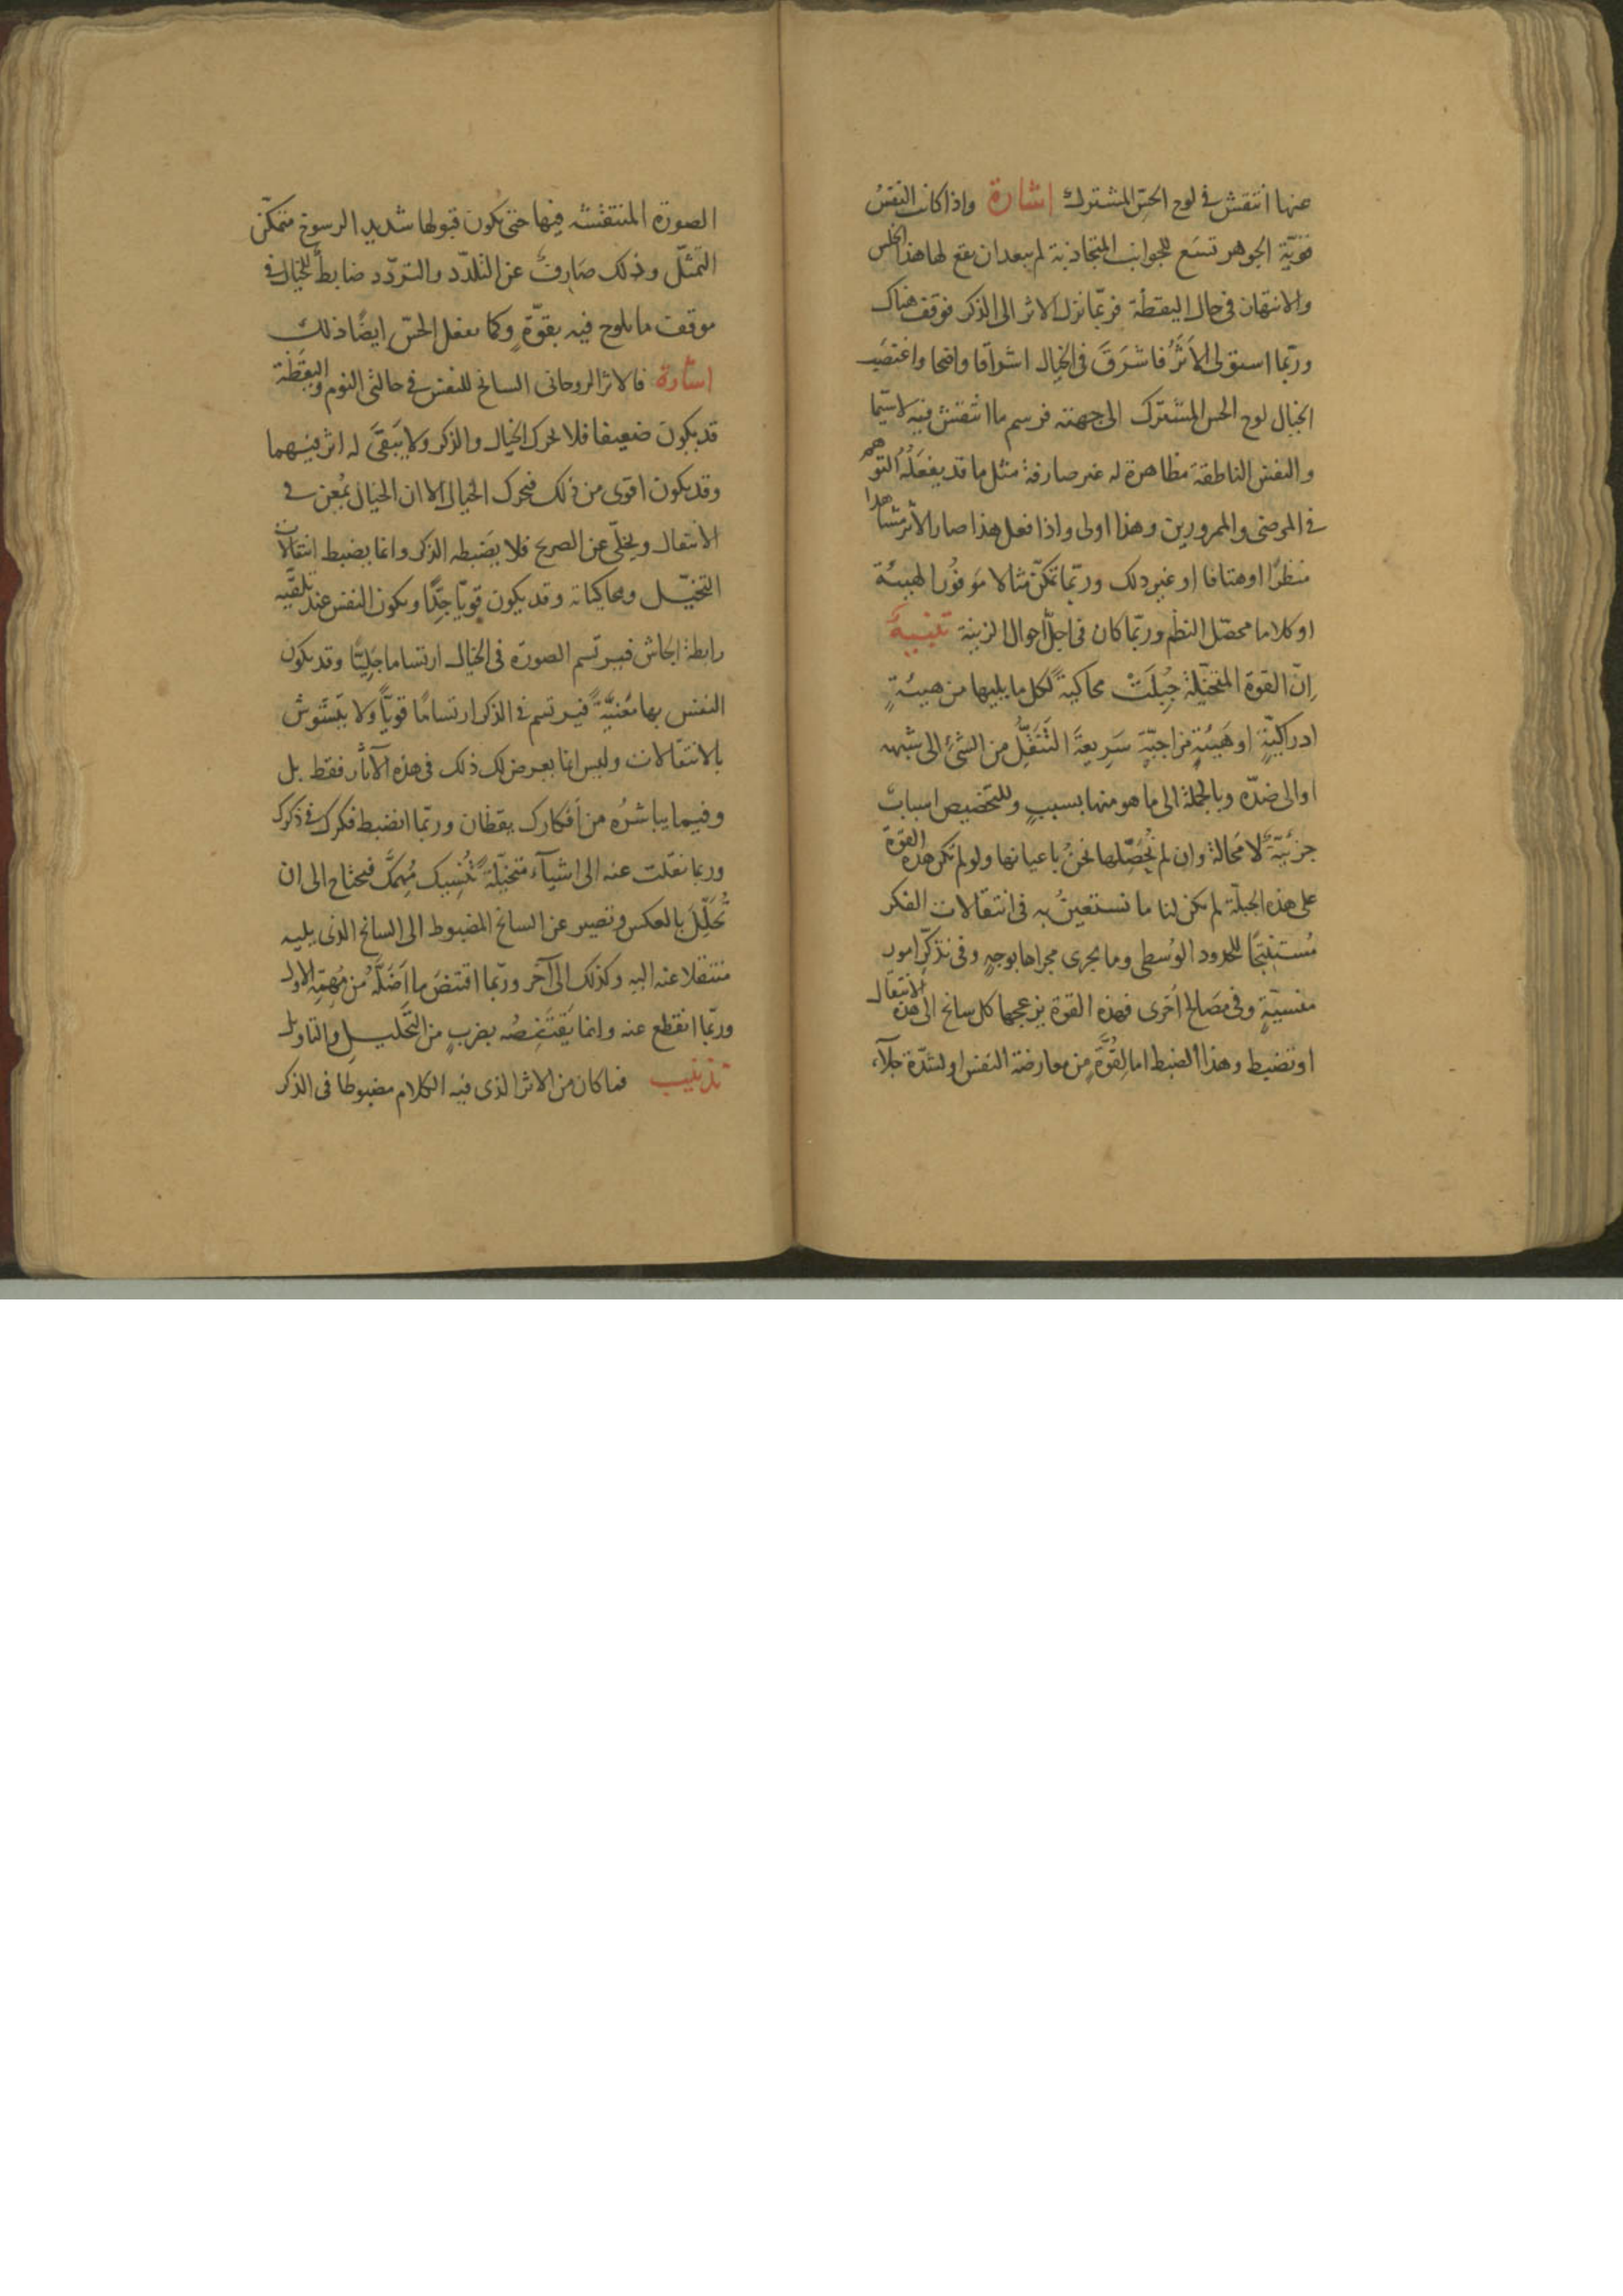 عنها انتقش في لوح الحسّ المشترك اشارة واذا كانت النفسُ
قويّة الجوهر تسَع للجوانب المتجاذبة لم يبعد ان يقع لها هذا الخلس
والانتهان في حال اليقظة فربّما نزل الاثر الى الذكر فوقف هناك
وربّما استولى الاَثَرُ فاشرَقَ في الخيال اشراقا واضحا واغتصَب
الخيال لوح الحس المشترك الى جهته فرسم ما انتقش فيه لا سيّما
والنفس الناطقة مظاهرة له غير صارفة مثل ما قد يفعَلُهُ التوهم
في المرضى والممرورين وهذا اولى واذا فعل هذا صار الأثر مشاهدا
منظرًا او هتافا او غير ذلك وربّما تمكّن مثالا موفُور الهيئة
او كلاما محصّل النظم وربّما كان في اجلّ احوال الزينة تنبيهٌ
اِنّ القوة المتخيّلة جُبِلَتْ محاكيةً لكل ما يليها من هيئةٍ
ادراكيّةٍ او هَيئةٍ مزاجيّةٍ سَرِيعةَ التَنَقُّلِ من الشئِ الى شبهه
او الى ضدّه وبالجملة الى ما هو منها بسببٍ وللتخصيص اسبابٌ
جزئيّةٌ لا محالة وان لم نُحَصِّلها نحنُ باعيانها ولو لم تكن هذه القوة
على هذه الجبلّة لم يكن لنا ما نستعينُ به في انتقالات الفكر
مُستنتِجًا للحدود الوُسطى وما يجرى مجراها بوجهٍ وفى تذكّر امورٍ
منسيّةٍ وفي مصَالح اُخرى فهذه القوة يزعجها كل سانح الى هذا الانتقال
او تضبط وهذا الضبط اما لِقُوَّةٍ من معارضة النفس او لشدّة جلآء
الصورة المنتقشة فيها حتى يكون قبولها شديد الرسوخ متمكّن
التمثّل وذلك صَارِفٌ عن التلدّد والتردّد ضابطٌ للخيال في
موقف ما يلوح فيه بقوّةٍ وكما يفعل الحسّ ايضًا ذلك
اشارة فالاثر الروحانى السانح للنفس في حالتى النوم واليقَظة
قد يكون ضعيفا فلا يحرك الخيال والذكر ولا يَبقَى له اثر فيهما
وقد يكون اقوى من ذلك فيحرك الخيال الا ان الخيال يُمعِن في
الانتقال ويخلّى عن الصريح فلا يضبطه الذكر وانما يضبط انتقالات
التخيّل ومحاكياته وقد يكون قويّا جِدًّا ويكون النفس عند تلقّيه
رابطة الجاش فيرتسم الصورة في الخيال ارتساما جَلِيًّا وقد يكون
النفس بها مَعْنِيَّةً فيرتسم في الذكر ارتسامًا قويًّا ولا يتشوش
بالانتقالات وليس انما يعرض لك ذلك في هذه الآثار فقط بل
وفيما يباشرُه من أفكارك يقظان وربّما انضبط فكرك في ذكرك
وربما نقلت عنه الى اشيآء متخيّلةٍ تُنسِيك مُهِمَّك فيحتاج الى ان
تُحَلِّلَ بالعكس وتصير عن السانح المضبوط الى السانح الذى يليه
منتقلا عنه اليه وكذلك الى آخر وربّما اقتنصَ ما اَضَلَّهُ من مُهِمِّه الاول
وربّما انقطع عنه وانما يَقتَنِصُه بضربٍ من التَّحليلِ والتاويل
تذنيب فما كان من الاثر الذى فيه الكلام مضبوطا فى الذكر